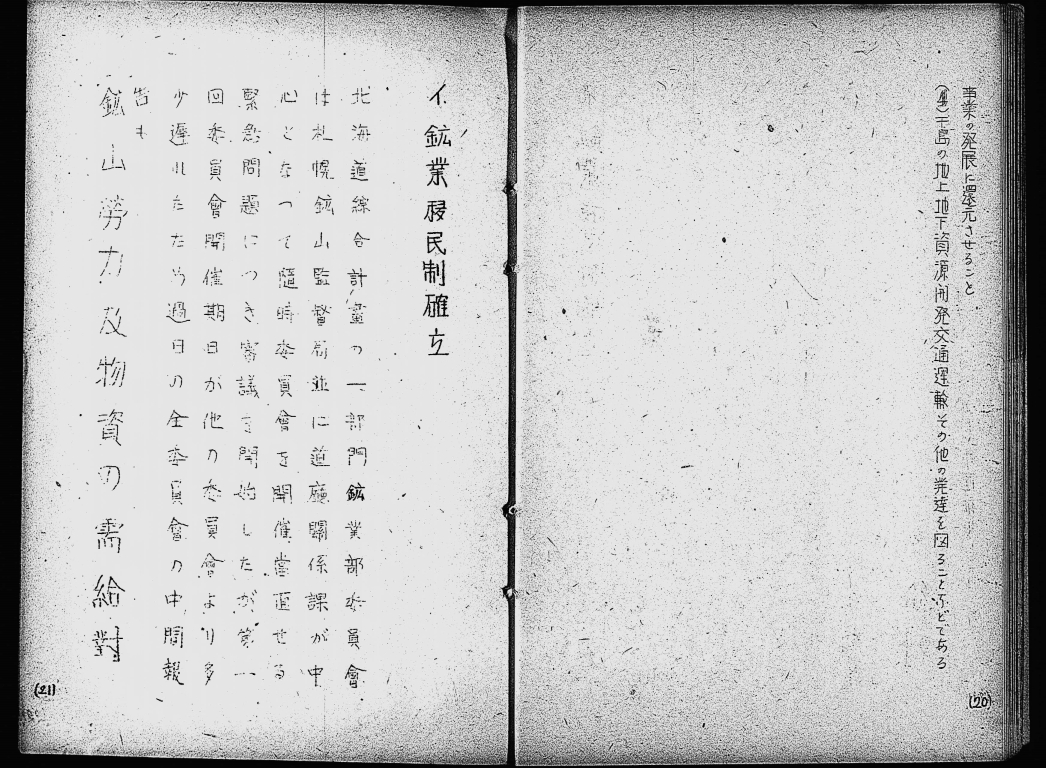 事業の発展に還元させること
千島の地上地下資源開発交通運輸その他の発達を図ることなどである
(20)
イ.鉱業移民制確立
北海道綜合計畫の一部門鉱業部委員會
は札幌鉱山監督局並に道廳關係課が中
心となつて随時委員會を開催當面せる
緊急問題につき審議を開始したが第一
回委員會開催期日が他の委員會より多
少遅れたため過日の全委員會の中間報
告も
鉱山勞力及物資の需給對
(21)